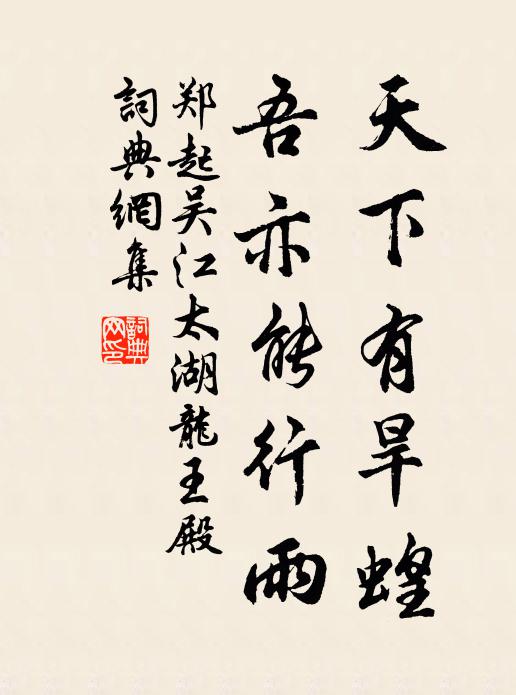 天下有旱蝗
吾亦能行雨
郑起吴江太湖龍王殿
詞典網集
詞典网印